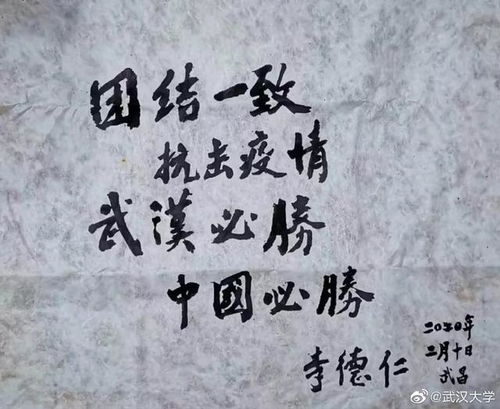 团结一致
抗击疫情
武漢必勝
中國必勝
李德仁
二〇二〇年
二月十日
武昌
@武汉大学